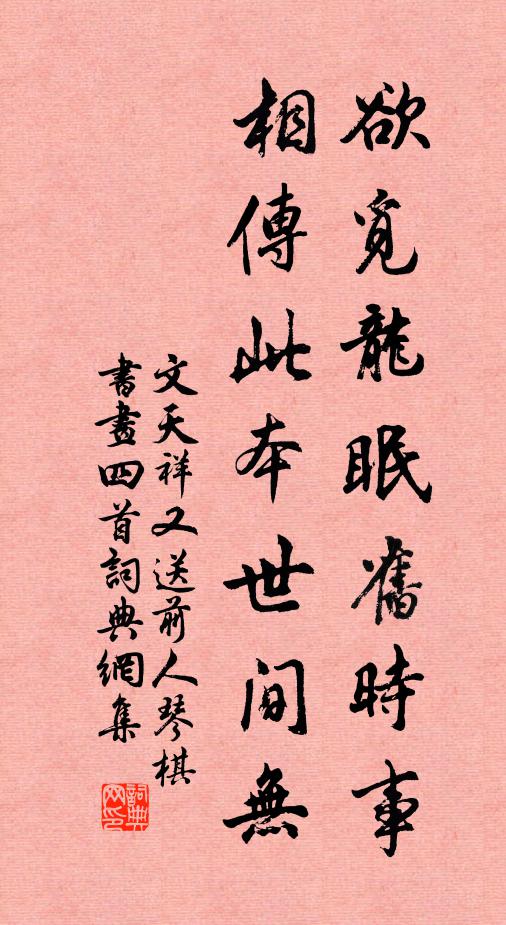 欲覓龍眠舊時事
相傳此本世間無
文天祥又送前人琴棋
書畫四首詞典網集
詞典網印